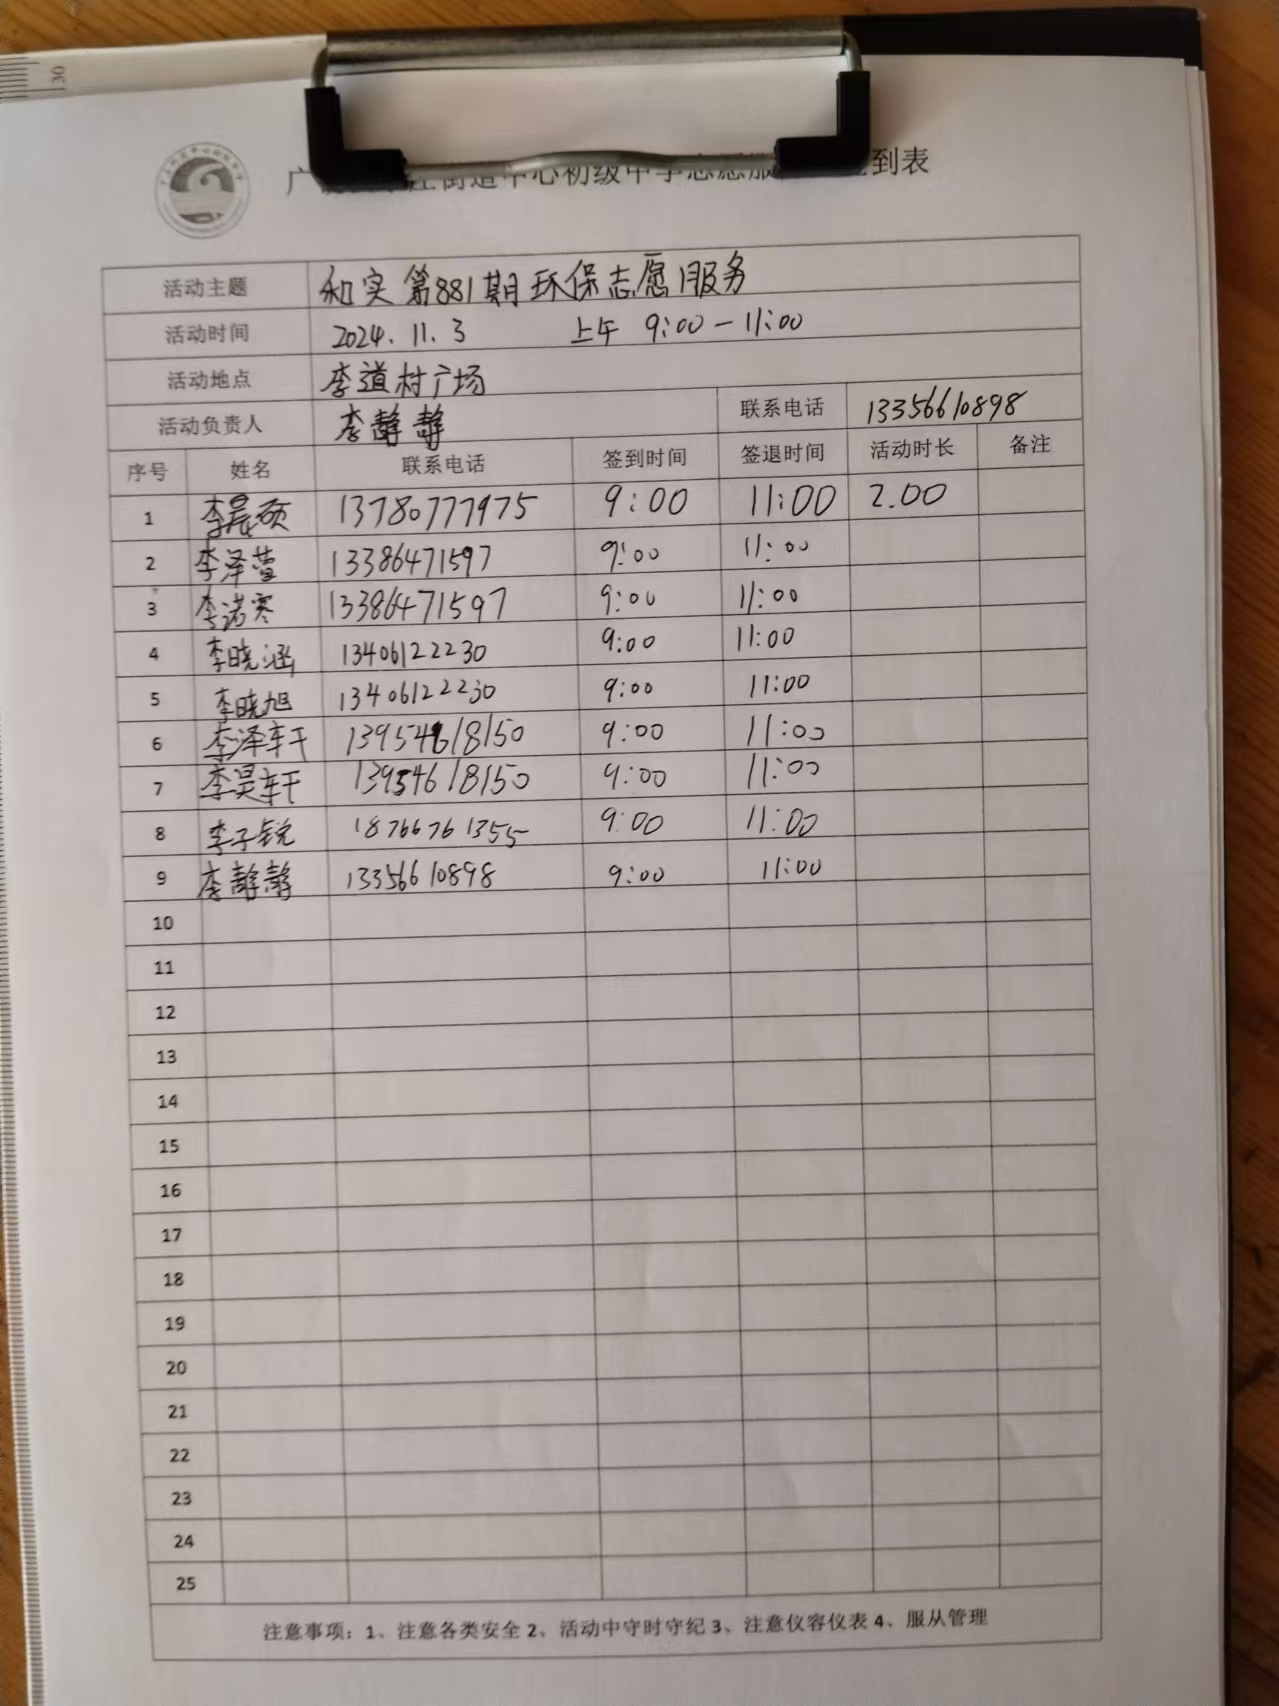 30
街道中心初级中学志愿服 到表
活动主题 和实第881期环保志愿服务
活动时间 2024.11.3 上午 9:00-11:00
活动地点 李道村广场
活动负责人 李静静 联系电话 13356610898
序号 姓名 联系电话 签到时间 签退时间 活动时长 备注
1 李晨硕 13780777975 9:00 11:00 2.00
2 李泽萱 13386471597 9:00 11:00
3 李诺寒 13386471597 9:00 11:00
4 李晓涵 13406122230 9:00 11:00
5 李晓旭 13406122230 9:00 11:00
6 李泽轩 13954618150 9:00 11:00
7 李昊轩 13954618150 9:00 11:00
8 李子锐 18766761355 9:00 11:00
9 李静静 13356610898 9:00 11:00
10
11
12
13
14
15
16
17
18
19
20
21
22
23
24
25
注意事项：1、注意各类安全 2、活动中守时守纪 3、注意仪容仪表 4、服从管理